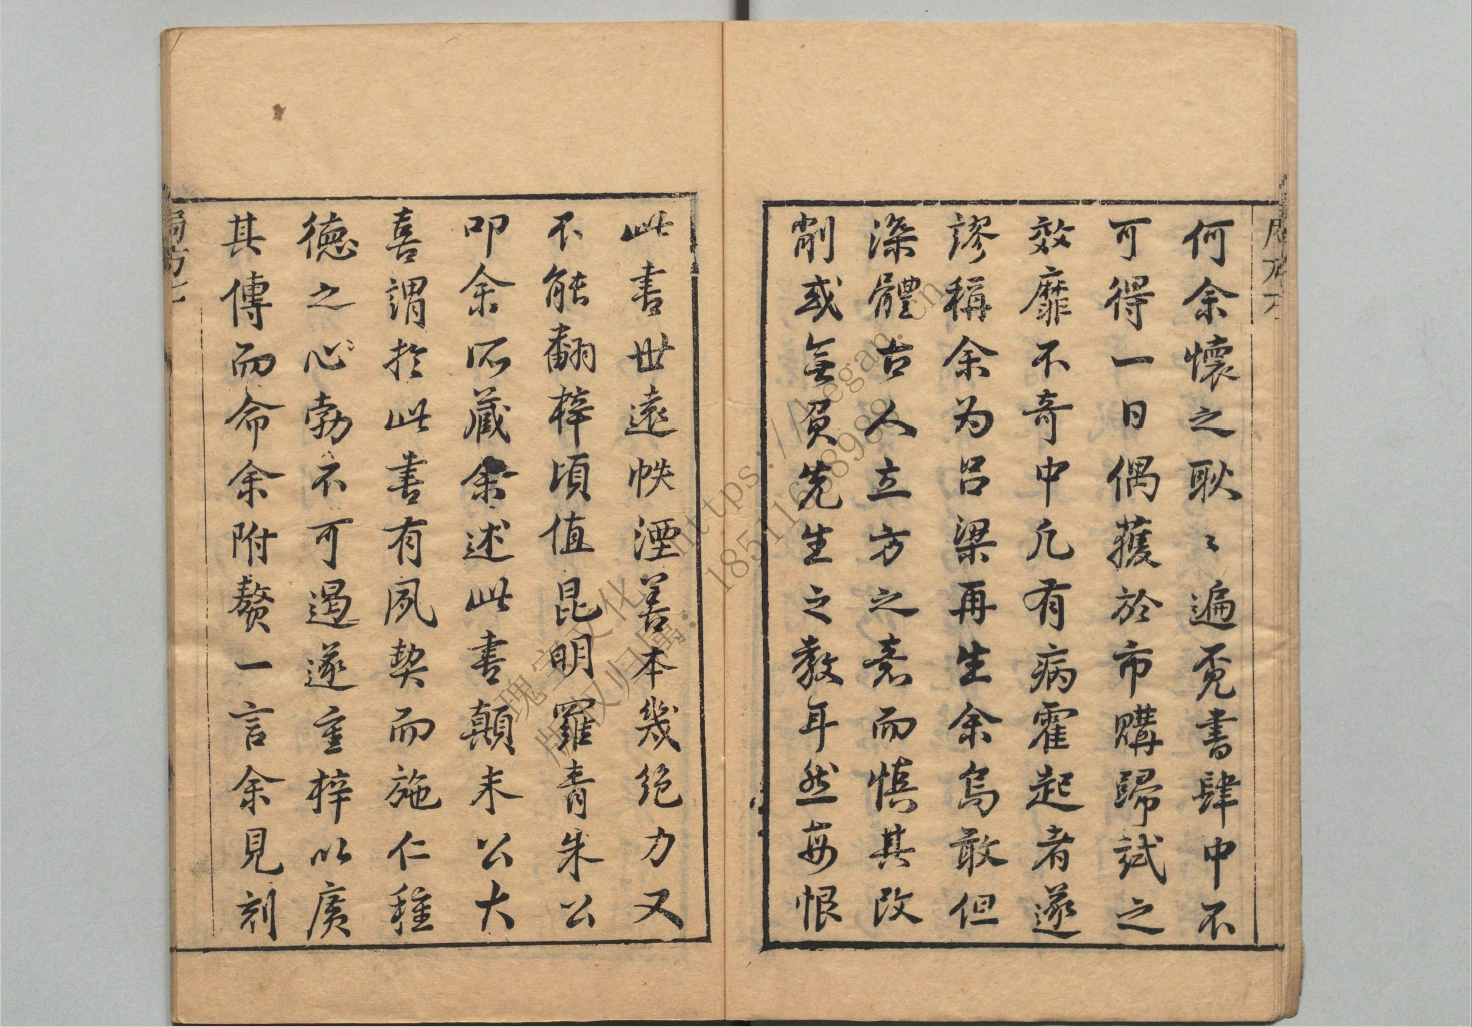 何余懷之耿〻遍覓書肆中不
可得一日偶獲於市購歸試之
效靡不奇中凡有病霍起者遂
謬稱余为呂梁再生余烏敢但
深體古人立方之意而慎其改
削或無負先生之教耳然每恨
此書世遠帙湮善本幾絕力又
不能翻梓頃值昆明羅青朱公
叩余所藏余述此書顛末公大
喜謂於此書有夙契而施仁種
德之心勃不可遏遂重梓以廣
其傳而命余附贅一言余見刻
瑰宝文化 https://
版权归属：